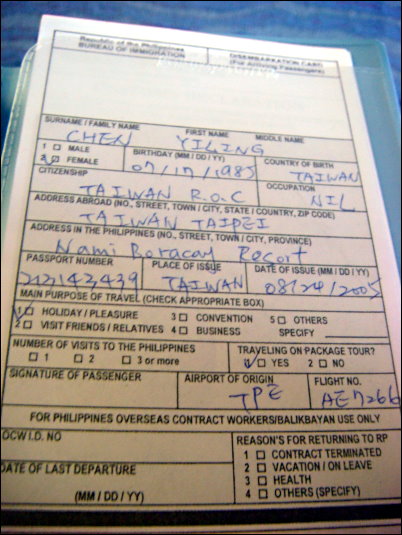 Republic of the Philippines
BUREAU OF IMMIGRATION
DISEMBARKATION CARD
(For Arriving Passengers)
SURNAME / FAMILY NAME FIRST NAME MIDDLE NAME
CHEN YILING
1 MALE
2 FEMALE
BIRTHDAY (MM / DD / YY)
07/17/1985
COUNTRY OF BIRTH
TAIWAN
CITIZENSHIP
TAIWAN R.O.C
OCCUPATION
NIL
ADDRESS ABROAD (NO., STREET, TOWN / CITY, STATE / COUNTRY, ZIP CODE)
TAIWAN TAIPEI
ADDRESS IN THE PHILIPPINES (NO., STREET, TOWN / CITY, PROVINCE)
Nami Boracay Resort
PASSPORT NUMBER PLACE OF ISSUE DATE OF ISSUE (MM / DD / YY)
212143439 TAIWAN 08/24/2005
MAIN PURPOSE OF TRAVEL (CHECK APPROPRIATE BOX)
1 HOLIDAY / PLEASURE 3 CONVENTION 5 OTHERS
2 VISIT FRIENDS / RELATIVES 4 BUSINESS SPECIFY
NUMBER OF VISITS TO THE PHILIPPINES
1 2 3 or more
TRAVELING ON PACKAGE TOUR?
1 YES 2 NO
SIGNATURE OF PASSENGER AIRPORT OF ORIGIN FLIGHT NO.
TPE AE7266
FOR PHILIPPINES OVERSEAS CONTRACT WORKERS/BALIKBAYAN USE ONLY
OCW I.D. NO
DATE OF LAST DEPARTURE
(MM / DD / YY)
REASON'S FOR RETURNING TO RP
1 CONTRACT TERMINATED
2 VACATION / ON LEAVE
3 HEALTH
4 OTHERS (SPECIFY)